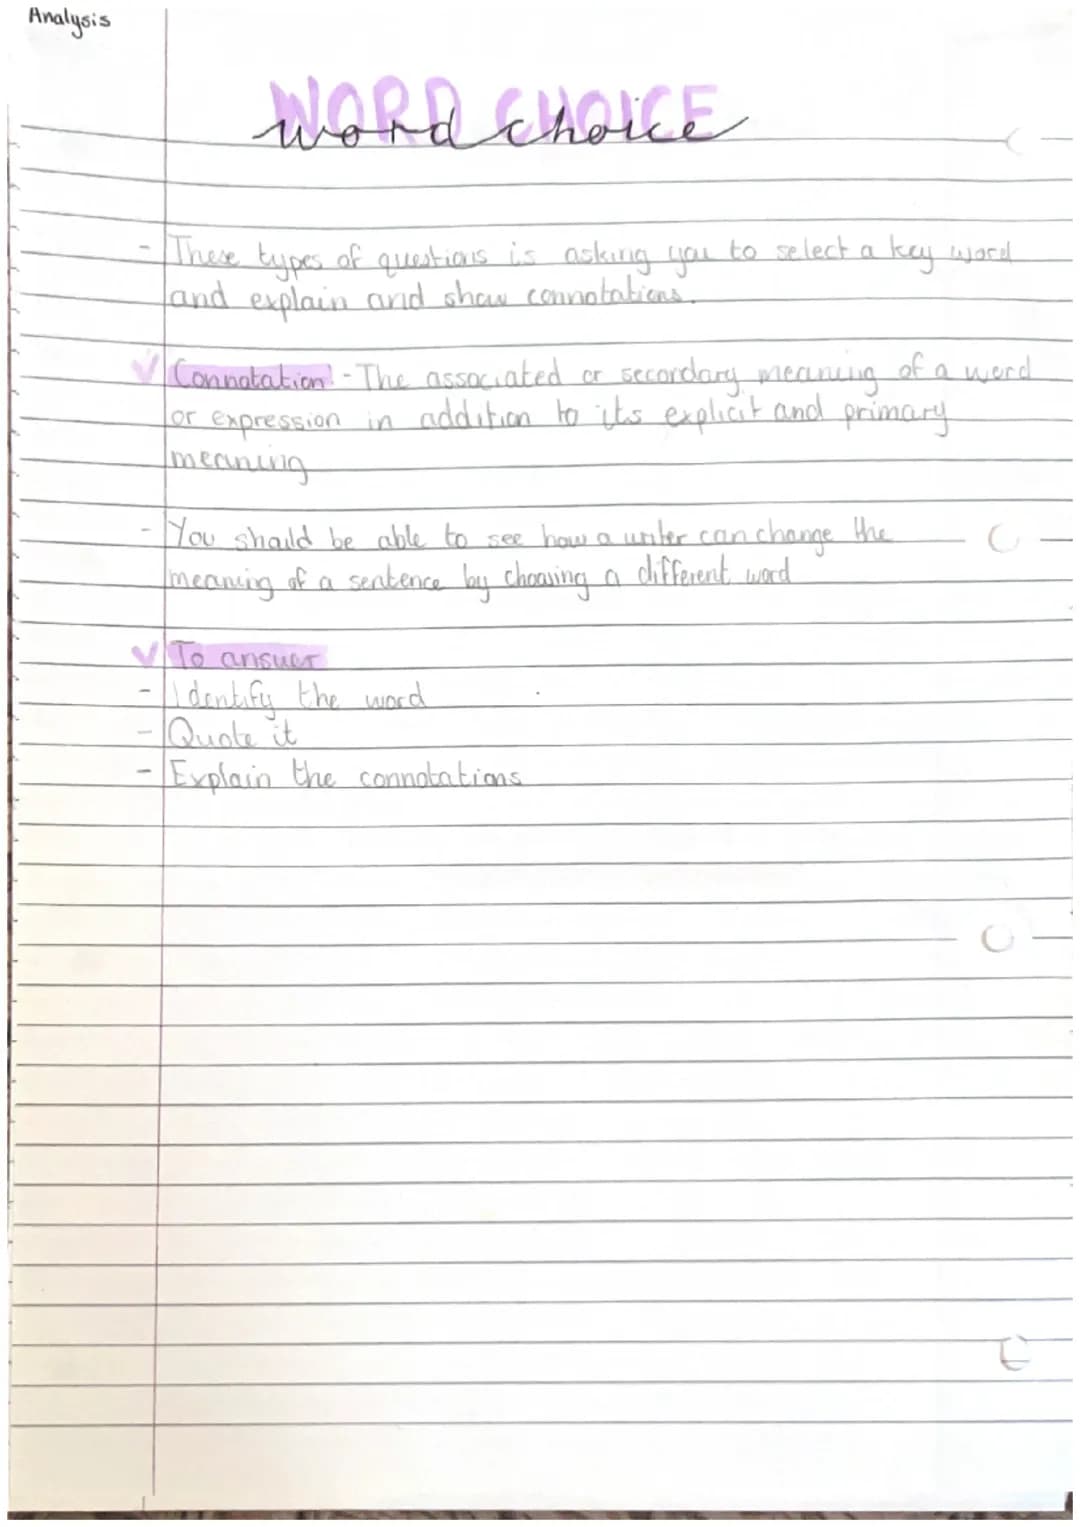 Analysis
WORD CHOICE
word choice
- These types of questions is asking you to select a key word
and explain and show connotations.
✓ Connotation! - The associated or secondary meaning of a word
or expression in addition to its explicit and primary
meaning
- You should be able to see how a writer can change the
meaning of a sentence by choosing a different word
✓ To answer
- Identify the word
- Quote it
- Explain the connotations